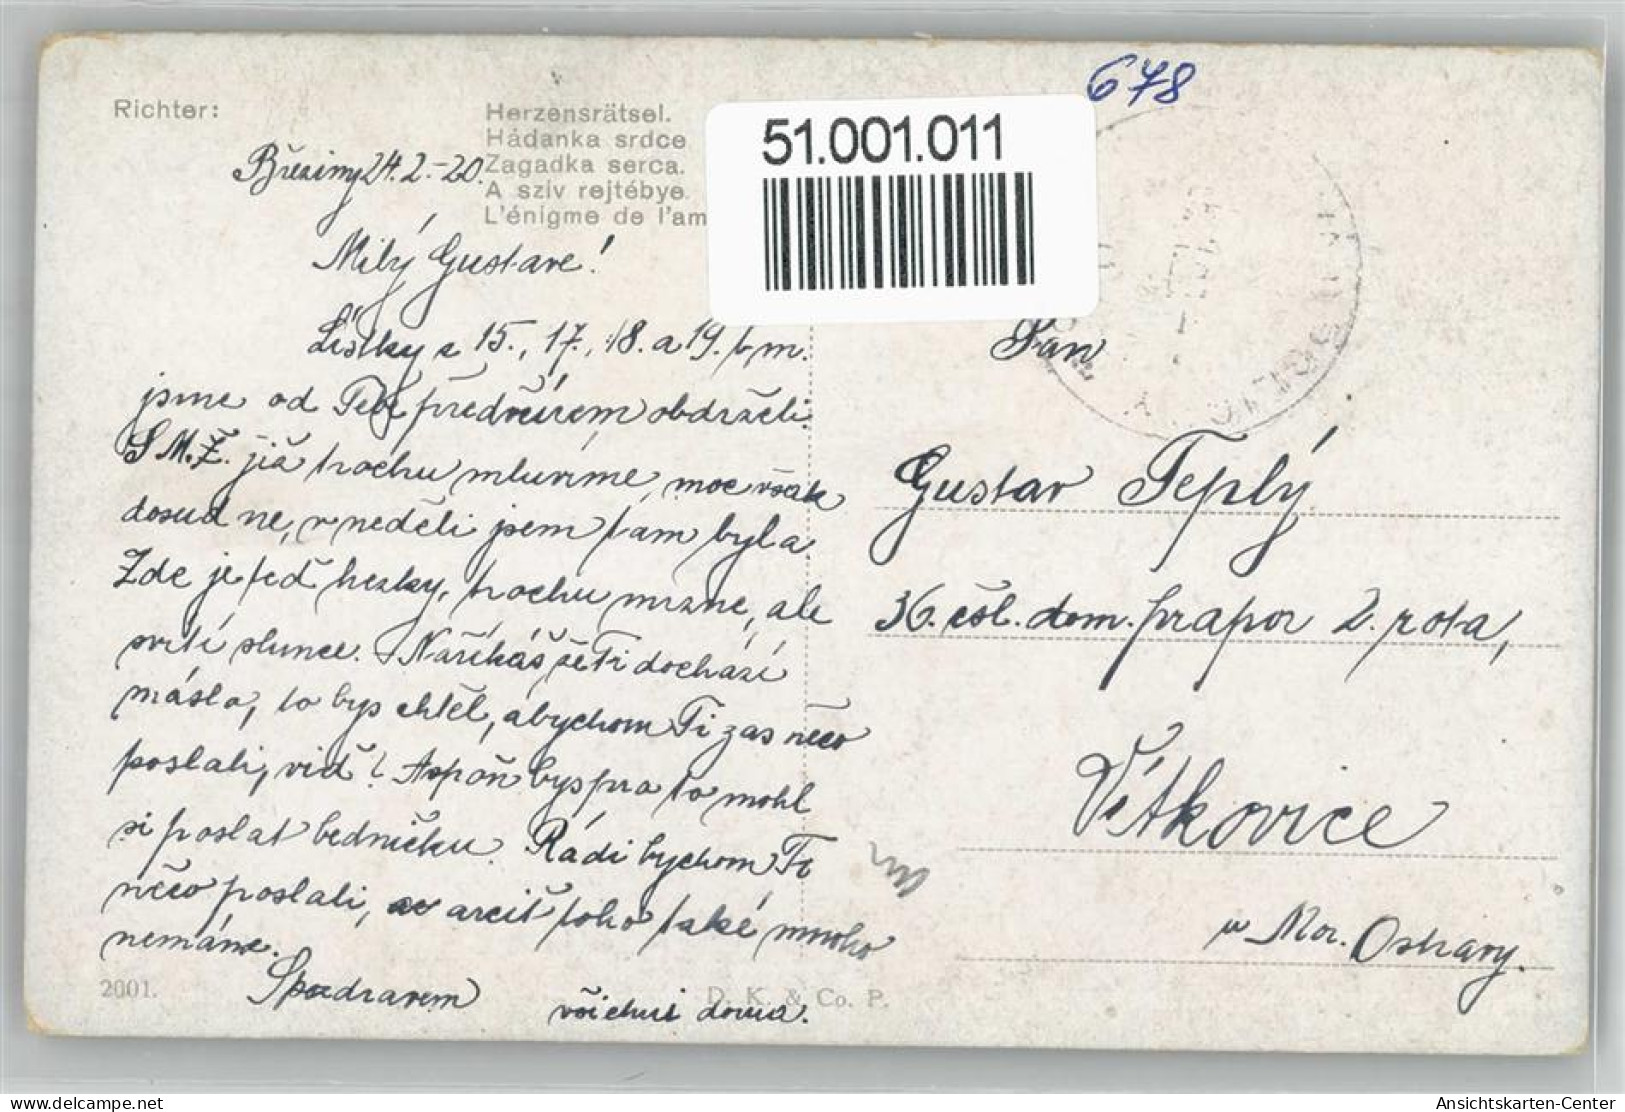 678
Richter:
Herzensrätsel.
Hádanka srdce
Zagadka serca.
A sziv rejtébye.
L'énigme de l'am
51.001.011
Březiny 24.2.-20.
Milý Gustave!
Lístky z 15., 17., 18. a 19. t.m.
jsme od Tebe předvčírem obdrželi.
S M.Ž. již trochu mluvíme, moc však
dosud ne, v neděli jsem tam byla.
Zde je teď hezky, trochu mrzne, ale
svítí slunce. Naříkáš že Ti dochází
máslo, to bys chtěl, abychom Ti zas něco
poslali, viď? Aspoň bys pro to mohl
si poslat bedničku. Rádi bychom Ti
něco poslali, arciť toho také mnoho
nemáme.
S pozdravem
všichni doma.
Pan
Gustav Teplý
36. čsl. dom. prapor 2. rota,
Vítkovice
u Mor. Ostravy.
2001.
D. K. & Co. P.
www.delcampe.net
Ansichtskarten-Center